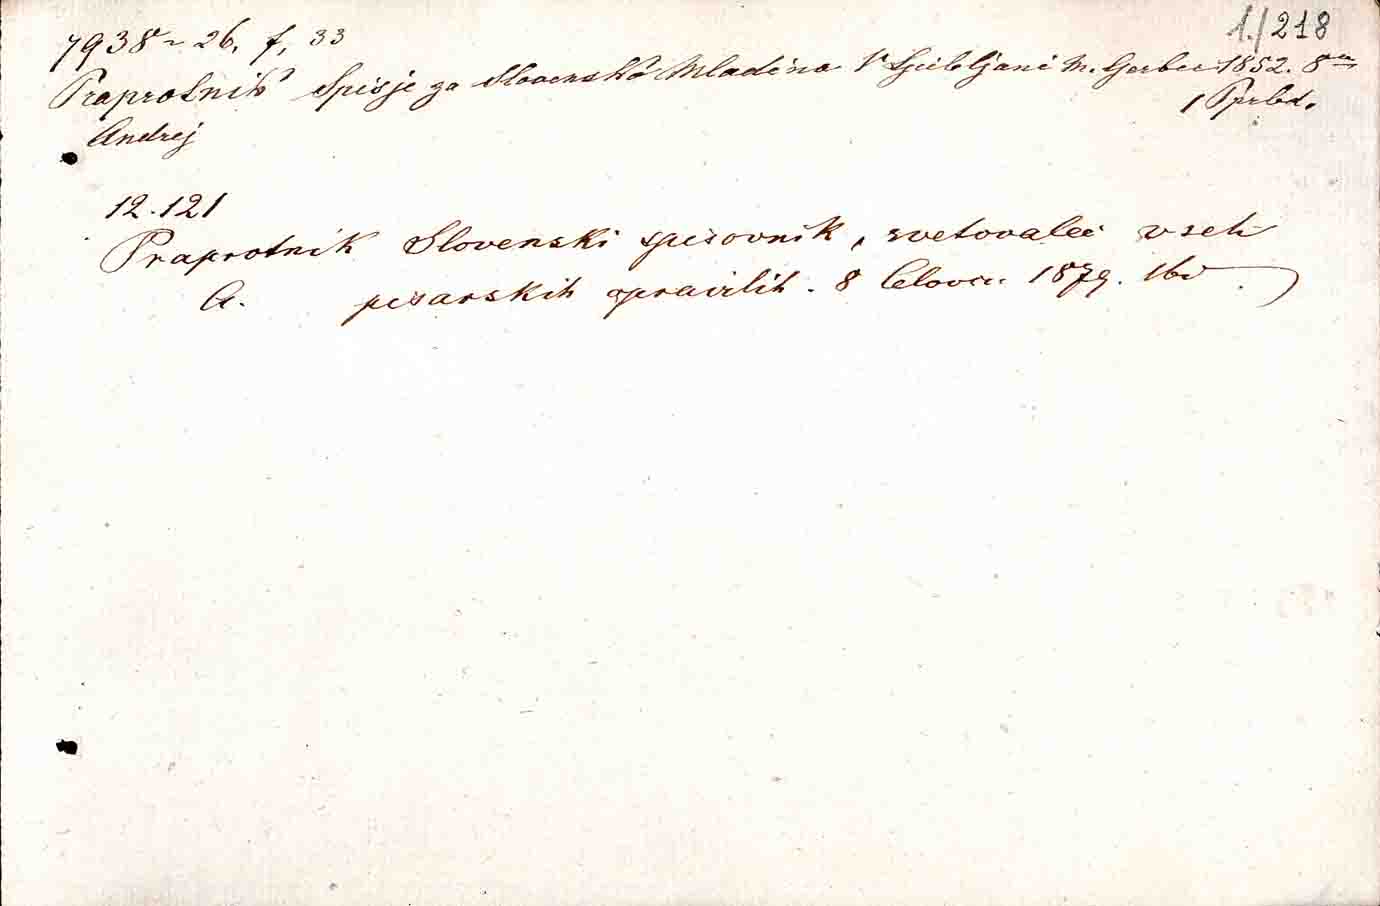 1./218
7938 - 26. f, 33
Praprotnik Spisje za Slovensko Mladino V Ljubljani M. Gerber 1852. 8
1 Pprbd.
Andrej
12.121
Praprotnik Slovenski spisovnik, svetovalec v seh
A. pisarskih opravilih. 8 Celovcu 1879. 1bd